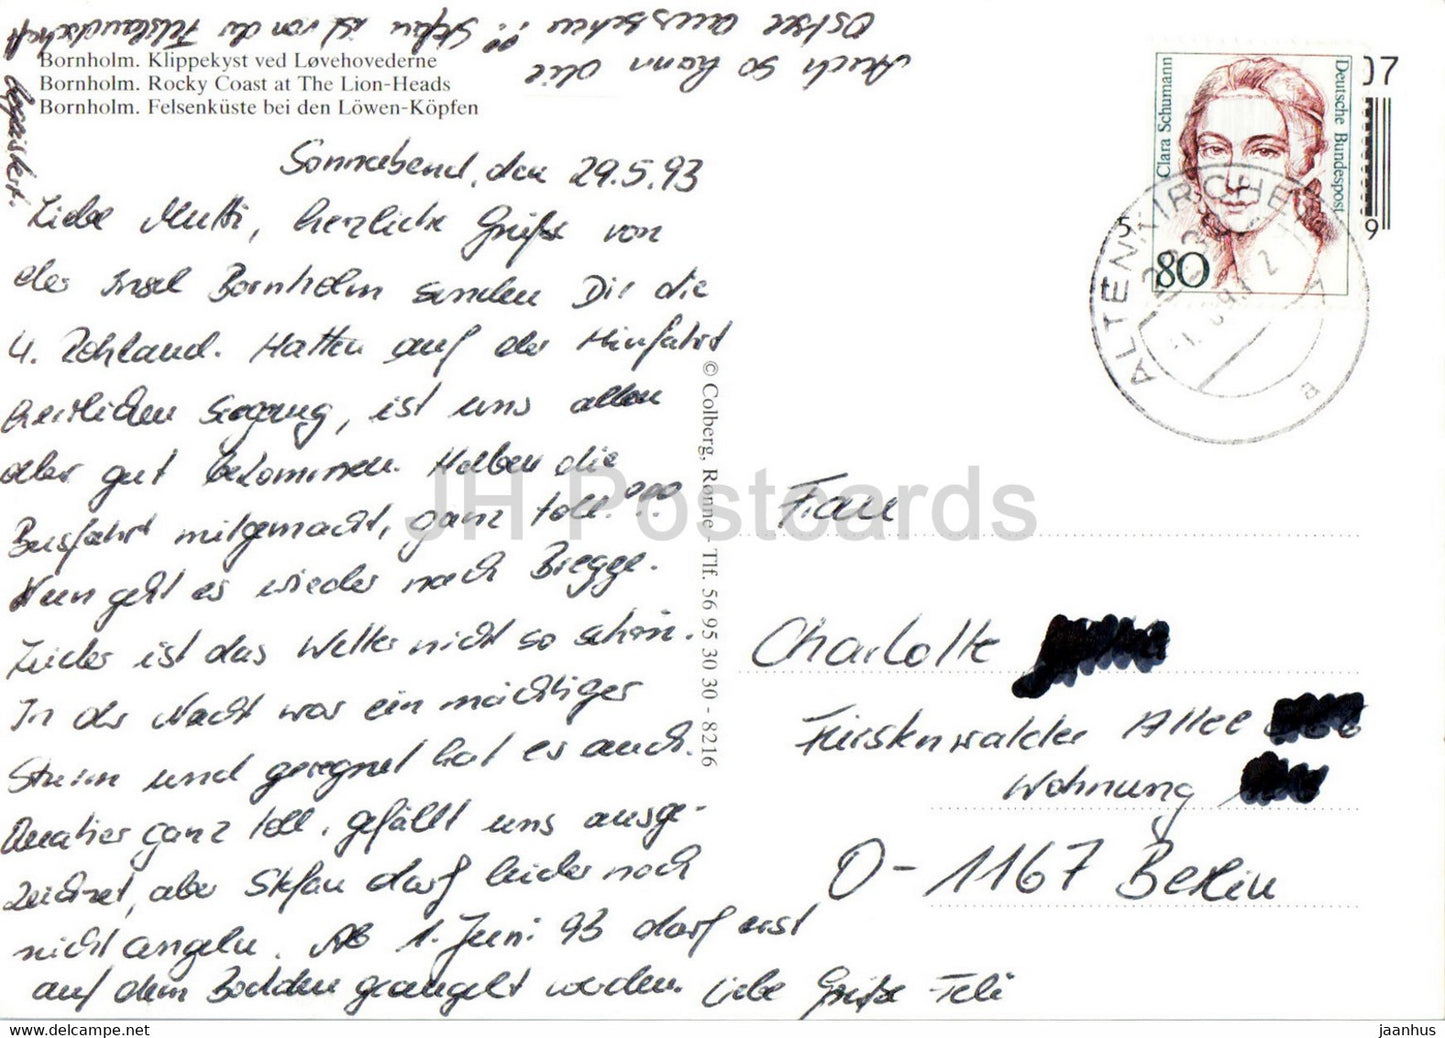 Auch so kann die
Ostsee aussehen!! Stefan ist von der Felslandschaft
begeistert.
Bornholm. Klippekyst ved Løvehovederne
Bornholm. Rocky Coast at The Lion-Heads
Bornholm. Felsenküste bei den Löwen-Köpfen
Sonnabend, den 29.5.93
Liebe Mutti, herzliche Grüße von
der Insel Bornholm senden Dir die
4. Rohland. Hatten auf der Hinfahrt
herrlichen Seegang, ist uns allen
aber gut bekommen. Haben die
Busfahrt mitgemacht, ganz toll!!!
Nun geht es wieder nach Bregge.
Leider ist das Wetter nicht so schön.
In der Nacht war ein mächtiger
Sturm und geregnet hat es auch.
Quatier ganz toll, gefällt uns ausge-
zeichnet, aber Stefan darf leider noch
nicht angeln. Ab 1. Juni 93 darf erst
auf dem Bodden geangelt werden. Liebe Grüße Feli
© Colberg, Rønne - Tlf. 56 95 30 30 - 8216
Clara Schumann
Deutsche Bundespost
80
07
5
9
ALTENKIRCHEN
a
Frau
Charlotte
Fürstenwalder Allee
Wohnung
O-1167 Berlin
JH Postcards
www.delcampe.net
jaanhus